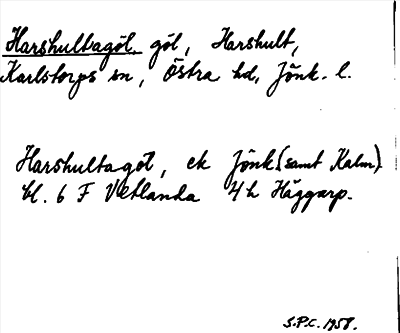 Harshultagöl, göl, Harshult,
Karlstorps sn, Östra hd, Jönk. l.
Harshultagöl, ek Jönk. (samt Kalm.)
bl. 6 F Vetlanda 4 h Häggarp.
S.P.C. 1958.